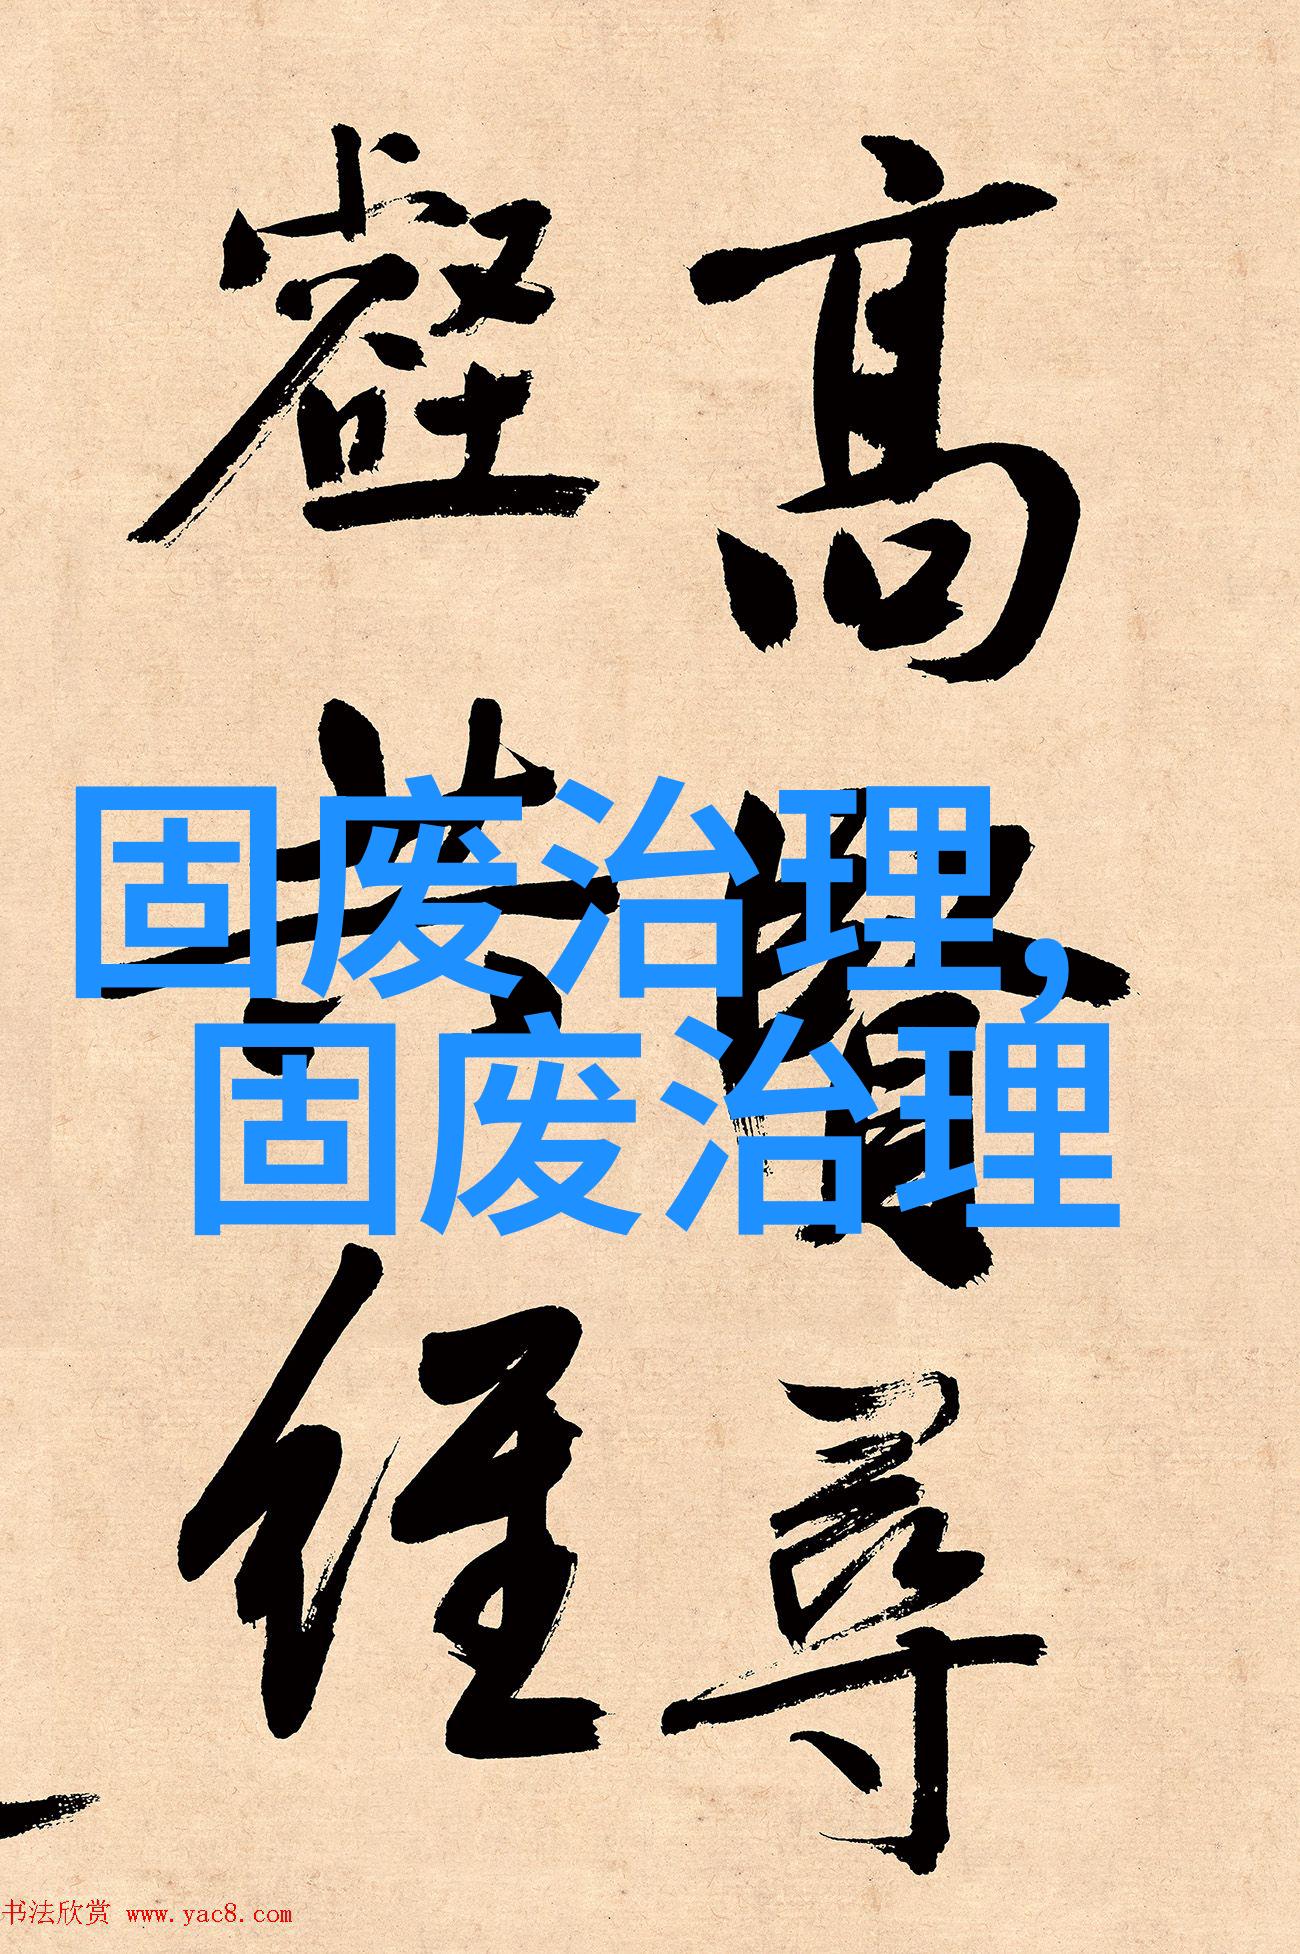 高賢尋
壑苦經
固废治理,
固废治理
书法欣赏 www.yac8.com